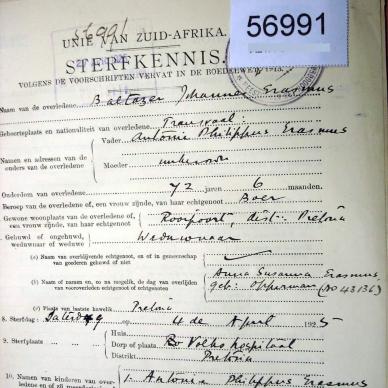 56991
56991
UNIE VAN ZUID-AFRIKA.
STERFKENNIS.
VOLGENS DE VOORSCHRIFTEN VERVAT IN DE BOEDELWET, 1913.
Naam van de overledene Baltazar Johannes Erasmus
Geboorteplaats en nationaliteit van overledene Transvaal
Namen en adressen van de ouders van de overledene
Vader Antonie Philippus Erasmus
Moeder unknown
Ouderdom van overledene 72 jaren 6 maanden.
Beroep van de overledene of, een vrouw zijnde, van haar echtgenoot Boer
Gewone woonplaats van de overledene of, een vrouw zijnde, van haar echtgenoot Rooipoort dist: Pretoria
Gehuwd of ongehuwd, weduwnaar of weduwe Weduwnaar
(a) Naam van overblijvende echtgenoot, en of in gemeenschap van goederen gehuwd of niet
(b) Namen en, zo na mogelik, de dag van overlijden van vooroverleden echtgenoot of echtgenoten Anna Susanna Erasmus geb: Opperman (No 43136)
(c) Plaats van laatste huwelik Pretoria
8. Sterfdag: Saterdag op 4 de April 1925
9. Sterfplaats
Huis
Dorp of plaats Volks hospitaal
Distrikt Pretoria
10. Namen van kinderen van over-
1. Antonie Philippus Erasmus